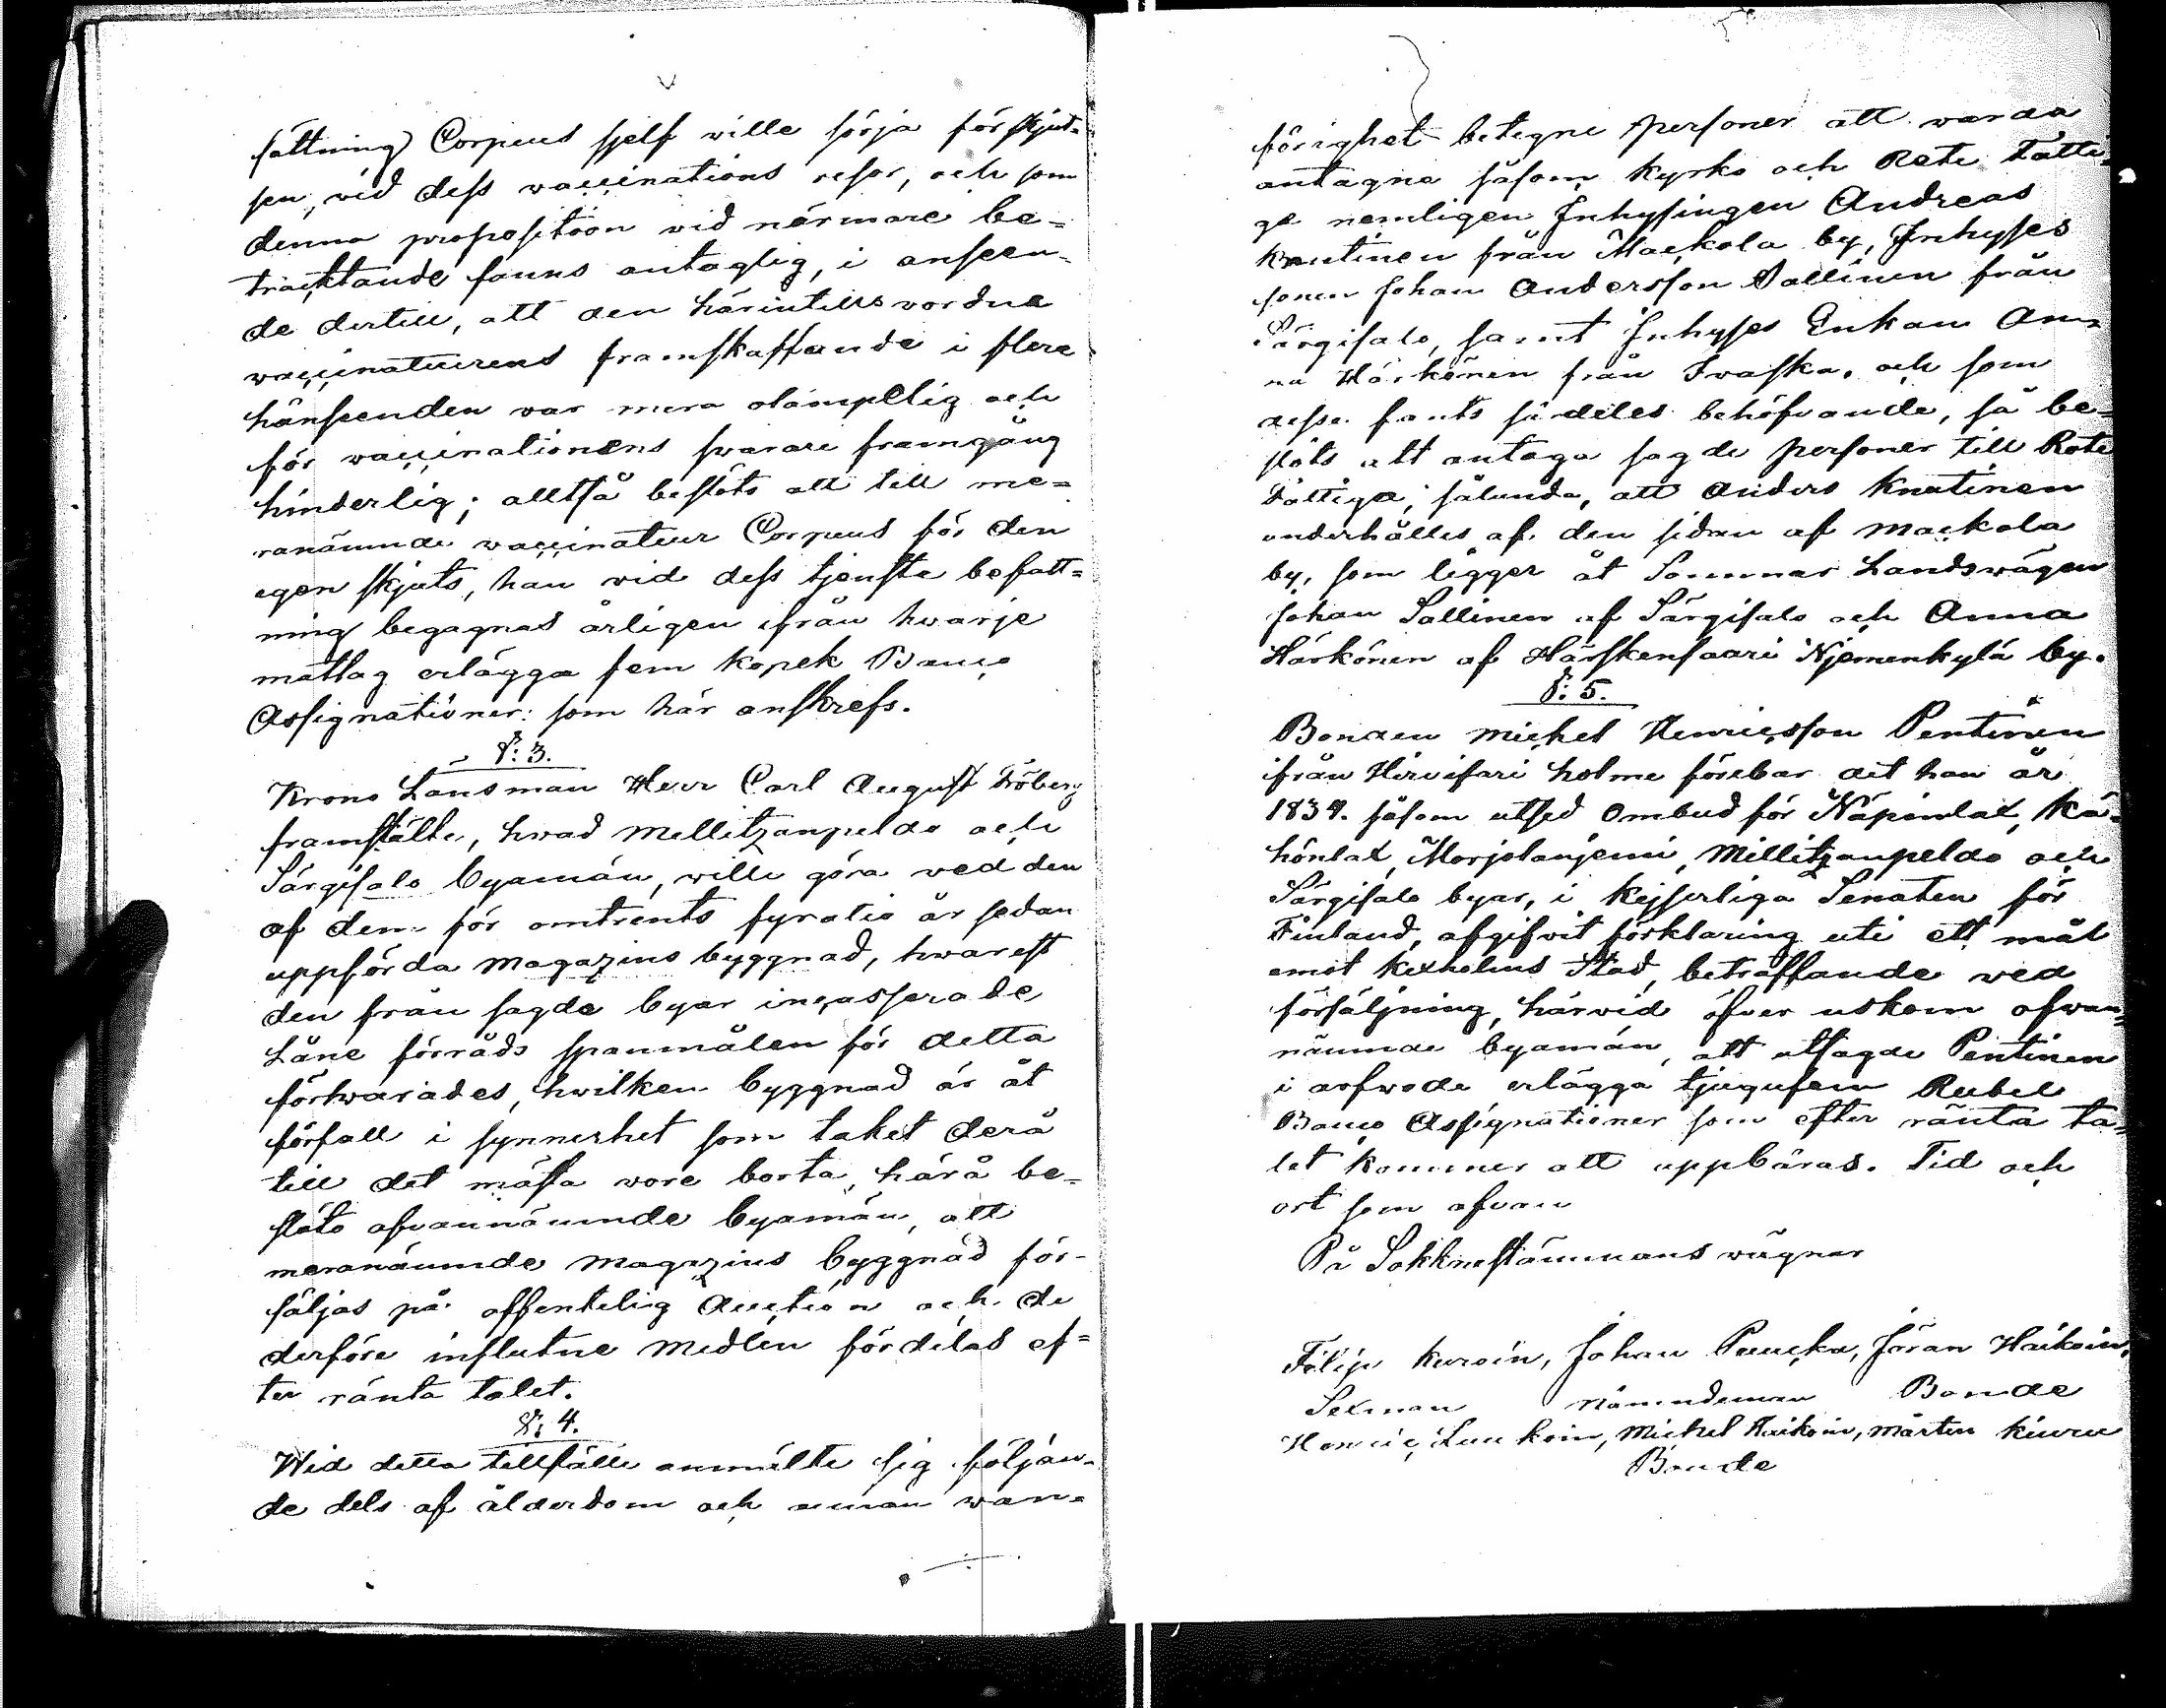 sättning) Corpus sjelf wille sörja för skjut-
sen, vid dess vaccinations resor, och som
denna proposition vid närmare be=
tracktande fanns antaglig, i anseen-
de dertill, att den härintills vordna
vaccinateurens framskaffande i flere
hänseenden var mera olämpelig och
för vaccinationens svarare framgång
hinderlig; alltså beslöts att till me=
ranämnde vaccinateur Corpus för den
egen skjuts, han vid dess tjenste befatt=
ning begagnas årligen ifrån hwarje
matlag erlägga fem kopek Banco
Assignationer: som här anskrefs.
§: 3.
Krono Länsman Herr Carl August Fröberg
framstälte, hwad Mellitzanpeldo och
Särgisalo byamän, wille göra ved den
af dem för omtrents fyratio år sedan
uppförda Magazins byggnad, hwarest
den från sagde byar incasserade
Låne förråds spanmålen för detta
förwarades, hwilken byggnad är åt
förfall i synnerhet som taket derå
till det mästa vore borta, härå be=
slöto ofvannämnde byamän, att
meranämnde Magazins byggnad för-
säljas på offentelig Auction och de
derföre influtne medlen fördelas ef=
ter ränta talet.
§: 4.
Wid detta tillfälle anmälte sig följan-
de dels af ålderdom och annan wan=
förighet betegne personer att warda
antagne såsom Kyrko och Rote Fatti-
ge nemligen Inhysingen Andreas
Knutinen från Mackola by, Inhyses
sonen Johan Andersson Sallinen från
Särgisalo, samt Inhyses Enkan An=
na Härkönen från Ivaska, och som
desse fants sådeles behöfvande, så be=
slöts att antaga sagde personer till Rote
Fattiga, sålunda, att Anders Knutinen
underhålles af den sidan af Mackola
by, som ligger åt Landswägen
Johan Sallinen af Särgisalo och Anna
Härkönen af Härskensaari Njemenkylä by.
§: 5.
Bonden Michel Henricsson Pentinen
ifrån Hirvisari holme förebar det han år
1834. såsom utsed Ombud för Näpinlax, Kä-
hönlax, Morjolanjemi, Millitzanpeldo och
Särgisalo byar, i Kejserliga Senaten för
Finland, afgifvit förklaring uti ett mål
emot Kexholms Stad, beträffande ved
försäljning, härvid öfver ofvan=
nämnde byamän, att utsagde Pentinen
i arfwode erlägga tjugufem Rubel
Banco Assignationer som efter ränta ta=
let kommer att uppbäras. Tid och
ort som ofvan
På Sokknestämmans wägnar
Filip Kuroin, Johan Paucku, Jöran Haikoin,
Sexman Nämndeman Bonde
Henric Luukoin, Michel Haikoin, Mårten Kiuru
Bonde